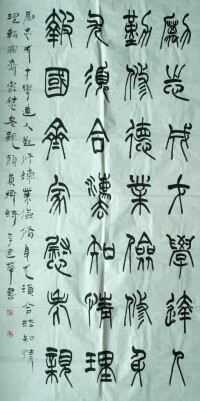 勵志成才學達人
勤修德業儉修身
尤須合灋知情理
報國齊家慰老親
勵志成才學達人勤修德業儉修身尤須合法知情
理報國齊家慰老親